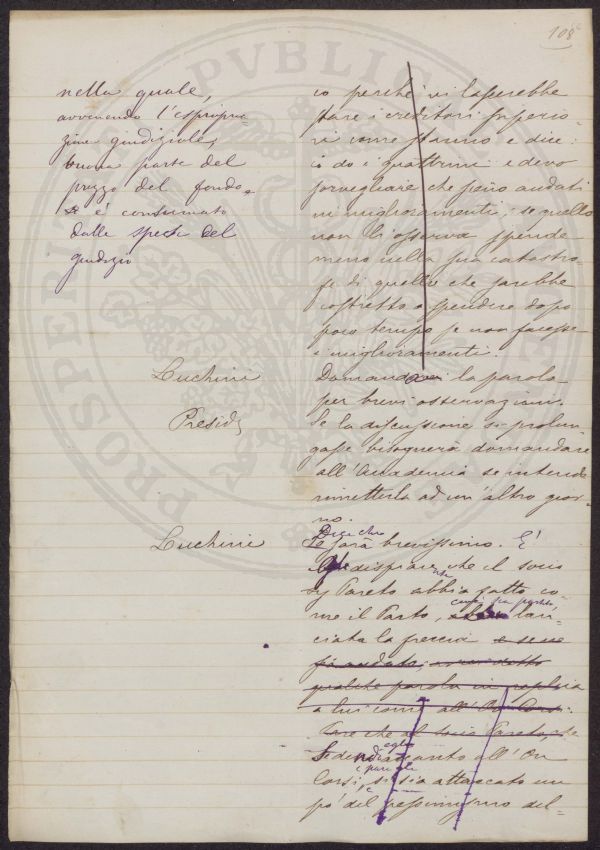 108
nella quale,
avvenendo l'espropria-
zione giudiziale,
buona parte del
prezzo del fondo
è consumato
dalle spese del
giudizio
io perché vi lascerebbe
stare i creditori
come stanno e dice:
io do i quattrini e devo
sorvegliare che siano andati
in miglioramenti, se quello
non li osserva spende
meno nella sua catastro-
fe di quello che sarebbe
costretto a spendere dopo
poco tempo se non facesse
i miglioramenti.
Luchini
Domand la parola
per brevi osservazioni.
Presid
Se la discussione si prolun-
gasse bisognerà domandare
all'Accademia se intende
rimetterla ad un altro gior-
no.
Luchini
Dice che
Se sarà brevissimo. È
dispiace che il socio
Pareto abbia fatto co-
me il Parto,
lan-
ciata la freccia e se ne
fu andato,
qualche parola in replica
a lui come all'On Corsi.
Pare che al socio Pareto, che
egli
accanto all'On
Corsi, si sia attaccato un
po' del pessimismo del-